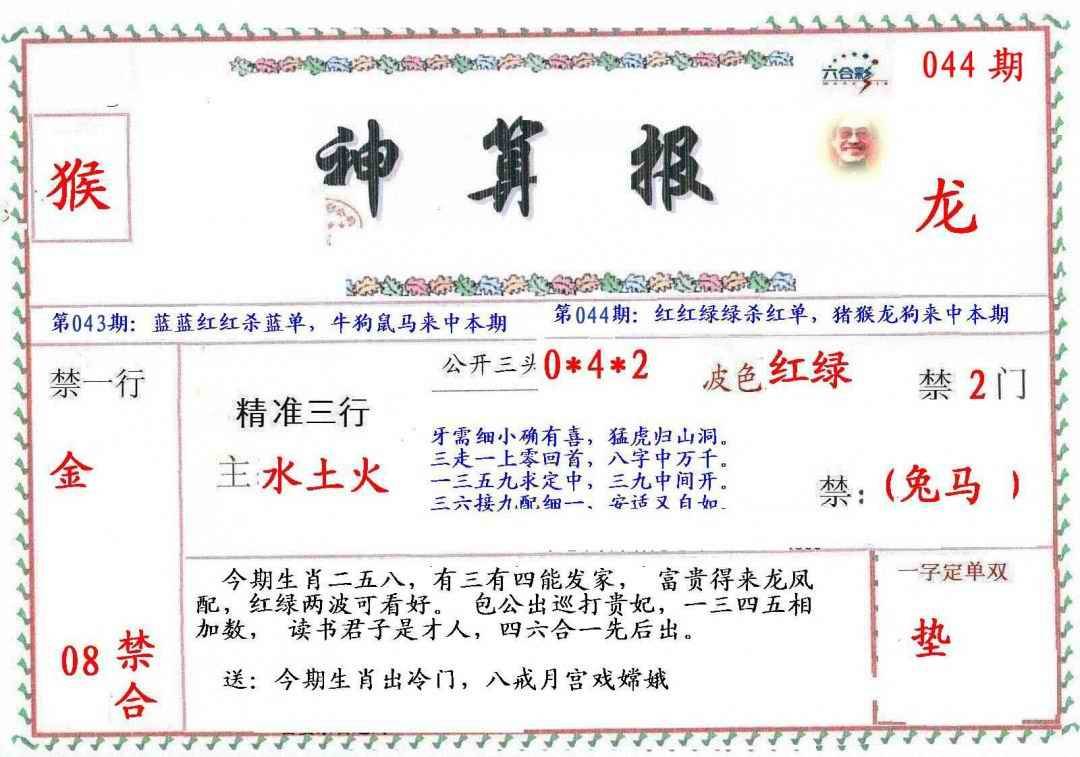 六合彩
044 期
神算报
猴
龙
第043期：蓝蓝红红杀蓝单，牛狗鼠马来中本期
第044期：红红绿绿杀红单，猪猴龙狗来中本期
禁一行
金
08 禁合
精准三行
主:水土火
公开三头 0*4*2
波色 红绿
禁 2 门
禁:(兔马 )
牙需细小确有喜，猛虎归山洞。
三走一上零回首，八字中万千。
一三五九求定中，三九中间开。
三六接九配细一、安适又自如.
今期生肖二五八，有三有四能发家， 富贵得来龙凤
配，红绿两波可看好。 包公出巡打贵妃，一三四五相
加数， 读书君子是才人，四六合一先后出。
送：今期生肖出冷门，八戒月宫戏嫦娥
一字定单双
垫